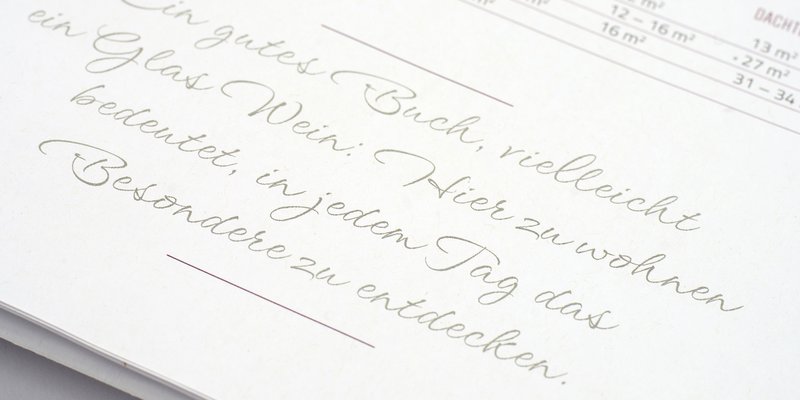 Ein gutes Buch, vielleicht
ein Glas Wein: Hier zu wohnen
bedeutet, in jedem Tag das
Besondere zu entdecken.
12 – 16 m²
16 m²
13 m²
27 m²
31 – 34